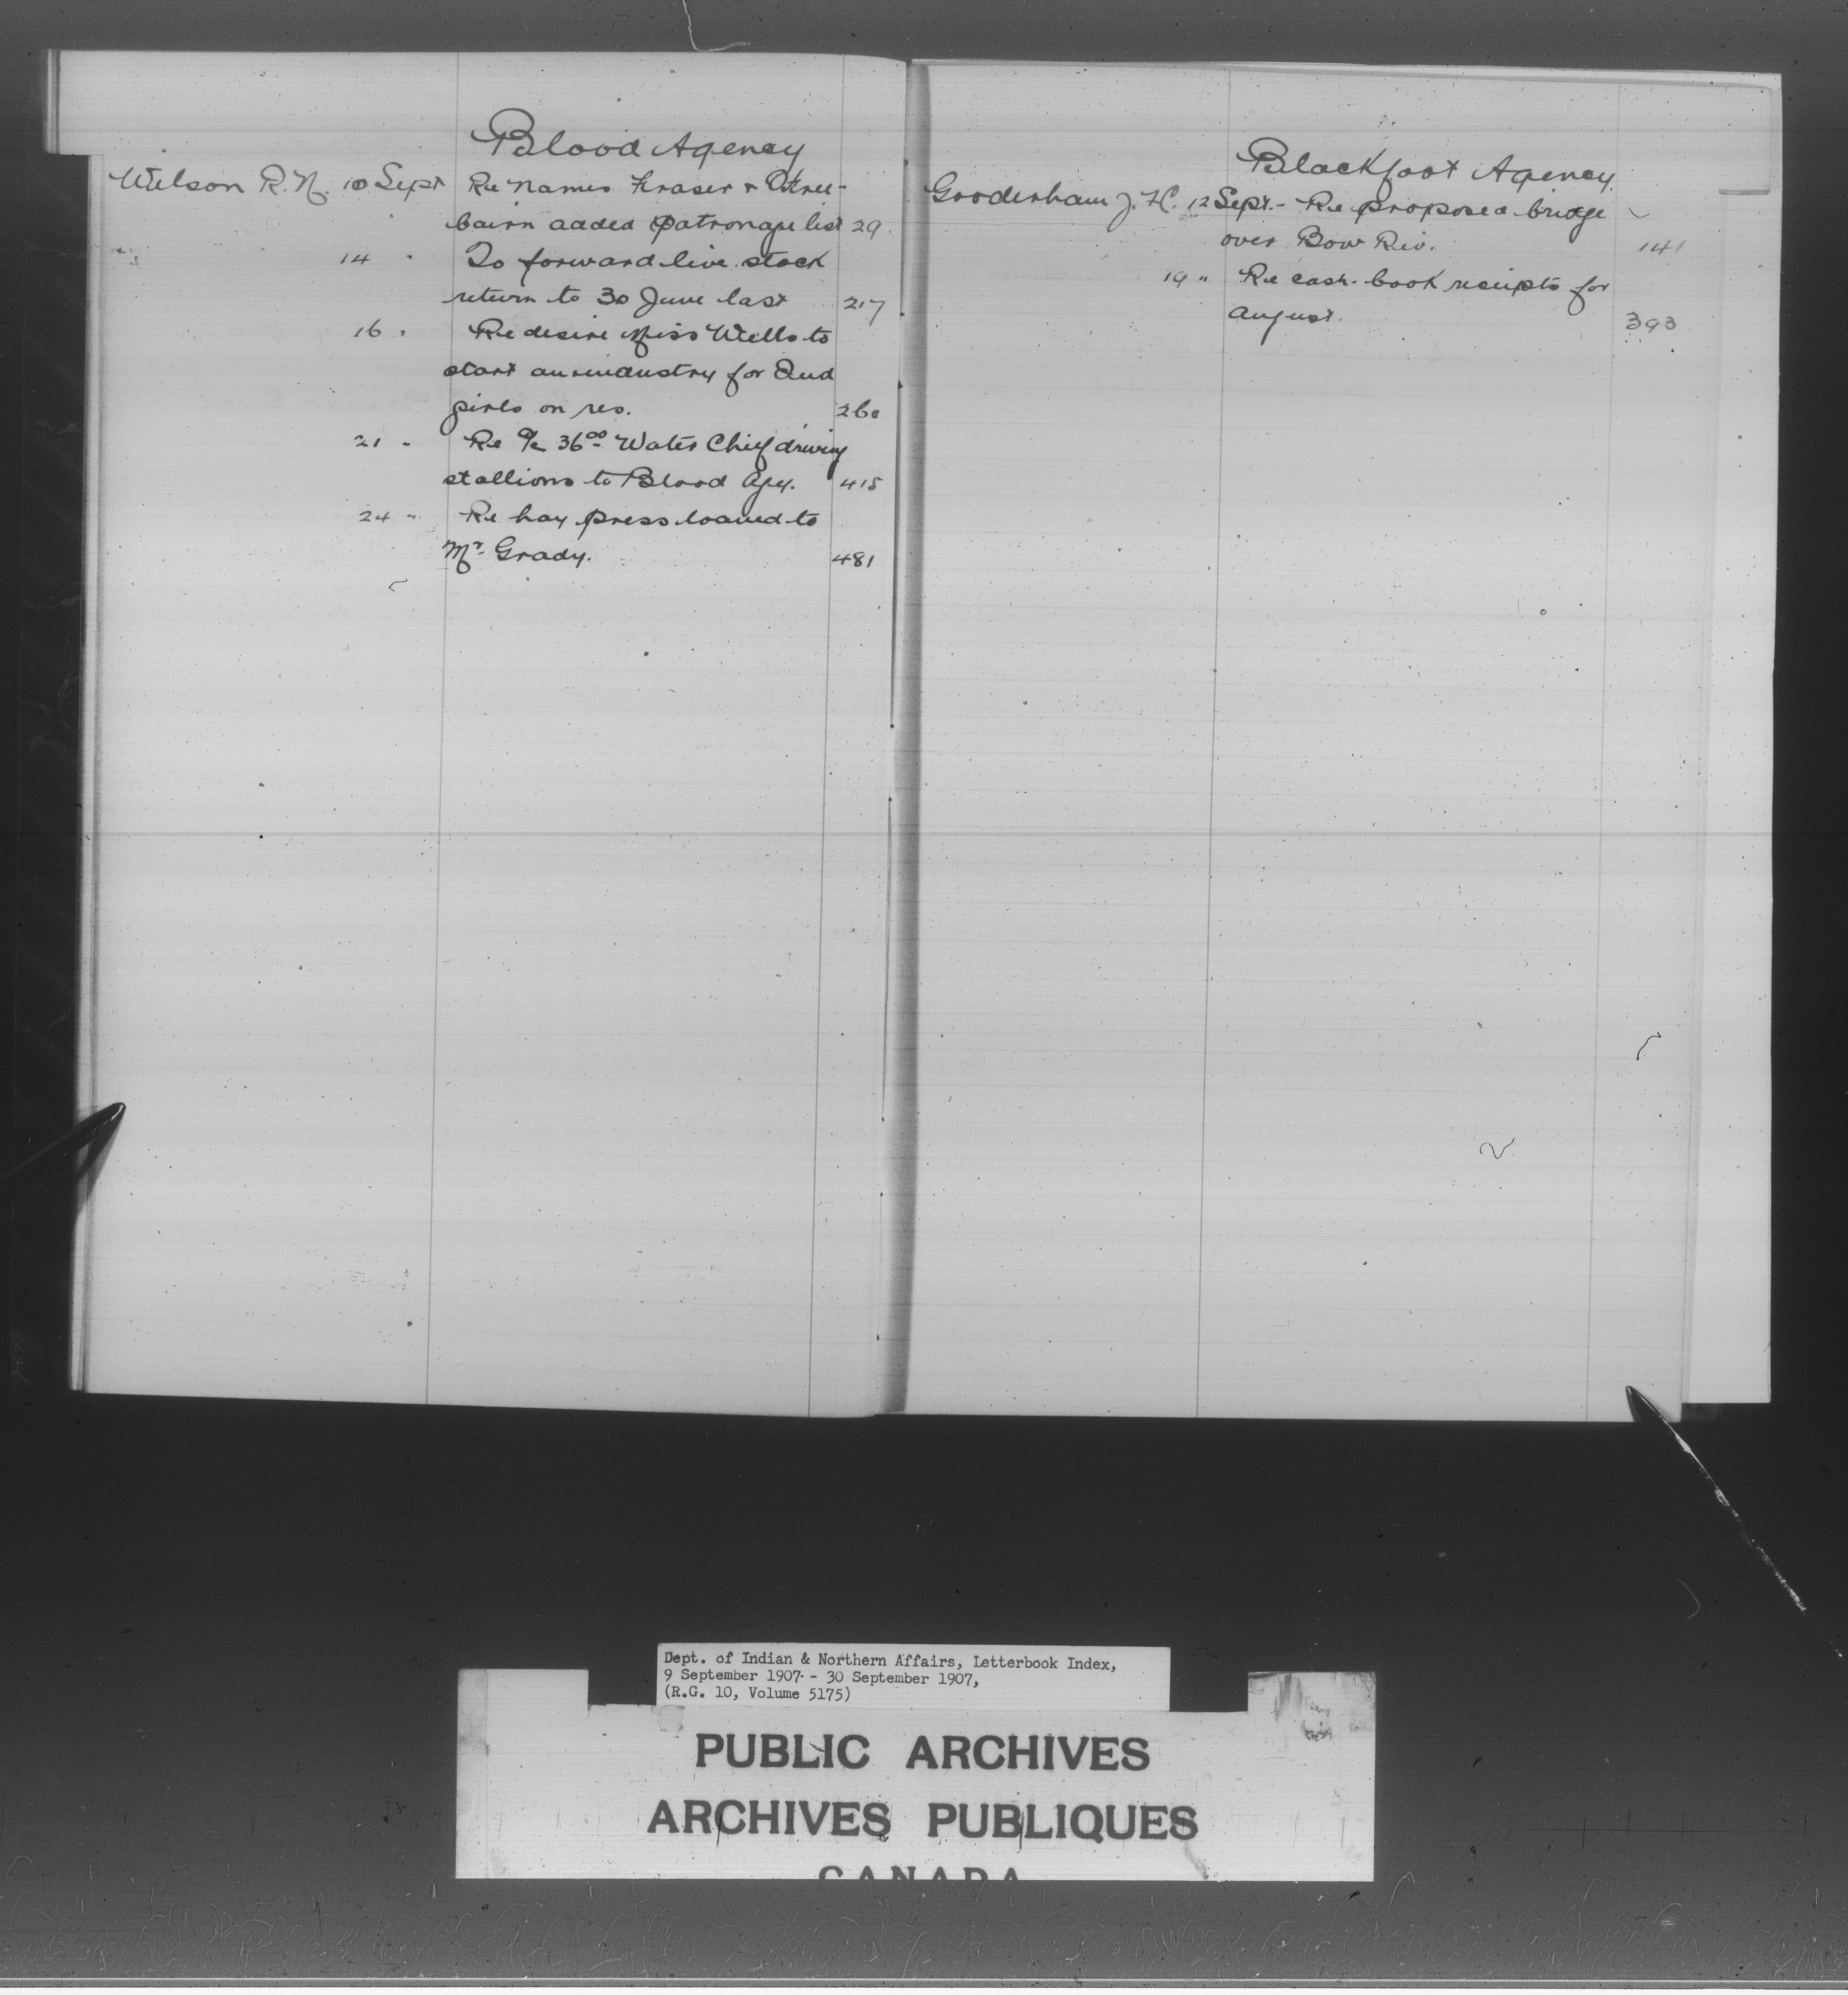 Blood Agency
Wilson R. N. 10 Sept Re names Fraser &
bairn added patronage list 29
14 " To forward live stock
return to 30 June last 217
16 " Re desire Miss Wells to
start an industry for Ind
girls on res. 260
21 " Re a/c 36.00 Water Chief driving
stallions to Blood Agy. 415
24 " Re hay press loaned to
Mr. Grady. 481
Blackfoot Agency
Gooderham J. H. 12 Sept. - Re proposed bridge
over Bow Riv. 141
19 " Re cash-book receipts for
August. 393
Dept. of Indian & Northern Affairs, Letterbook Index,
9 September 1907 - 30 September 1907,
(R.G. 10, Volume 5175)
PUBLIC ARCHIVES
ARCHIVES PUBLIQUES
CANADA